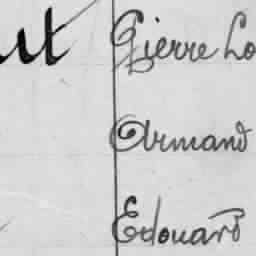 ut Pierre Lo
Armand
Edouard